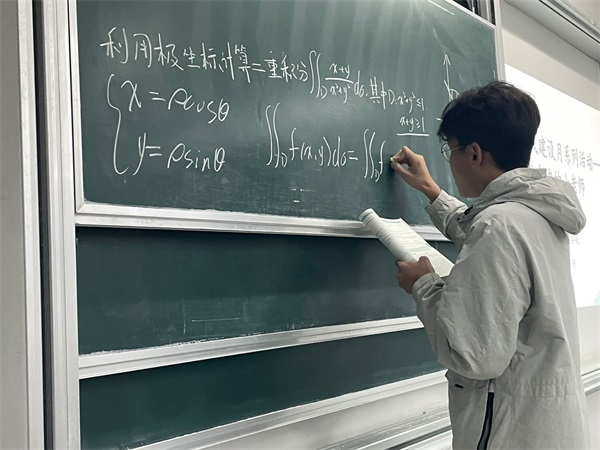 利用极坐标计算二重积分∬_D (x+y)/(x²+y²) dσ, 其中D: x²+y²≤1
x+y≥1
x = ρcosθ
y = ρsinθ
∬_D f(x,y)dσ = ∬_D f
建设月系列活动—